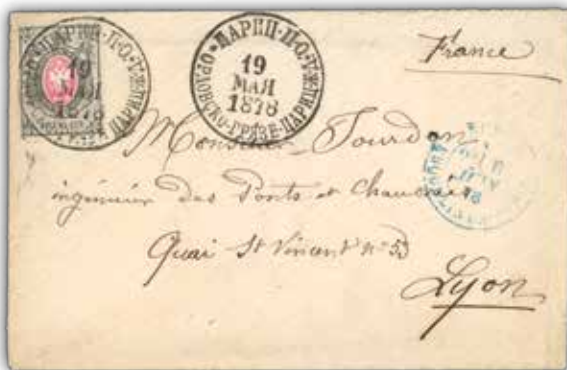 ЦАРИЦ·П·О·
19
МАЯ
1878
ОРЛОВСКО-ГРЯЗЕ-ЦАРИЦ·
France
Monsieur Jourdan
ingénieur des Ponts et Chaussées
Quai St Vincent n° 53
Lyon